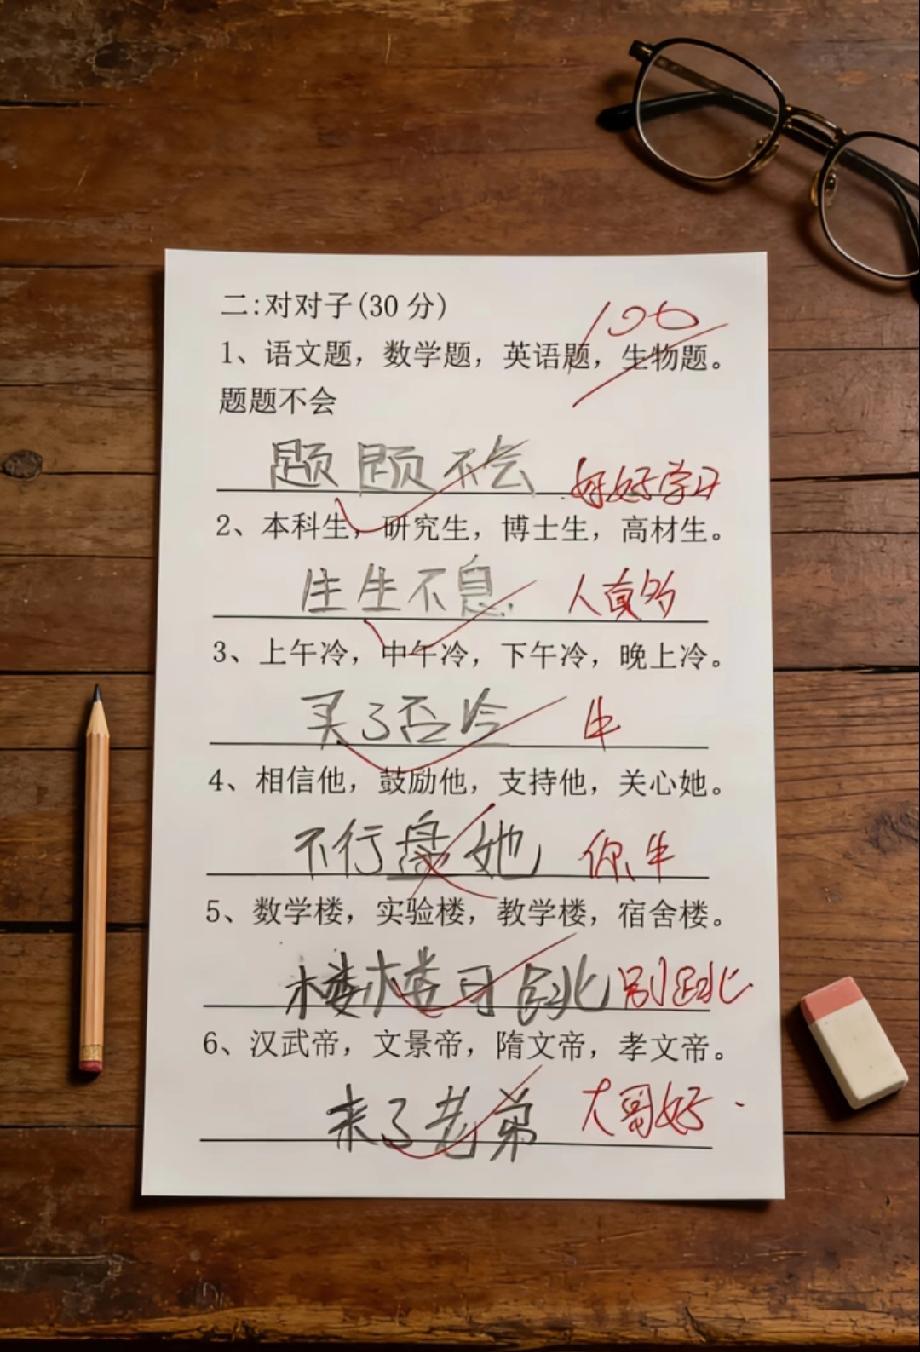 二:对对子(30 分)
100
1、语文题，数学题，英语题，生物题。
题题不会
题题不会 好好学习
2、本科生，研究生，博士生，高材生。
生生不息. 人真多
3、上午冷，中午冷，下午冷，晚上冷。
买了否冷 牛
4、相信他，鼓励他，支持他，关心她。
不行盘她 你牛
5、数学楼，实验楼，教学楼，宿舍楼。
楼楼可跳 别跳
6、汉武帝，文景帝，隋文帝，孝文帝。
来了老弟 大哥好